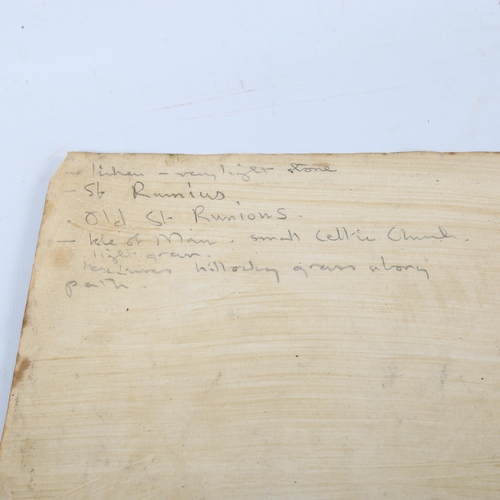 - lichen - very light stone
- St Runius.
. Old St Runious.
- Isle of Man. small Celtic Church.
light green.
hillocky grass along
path.